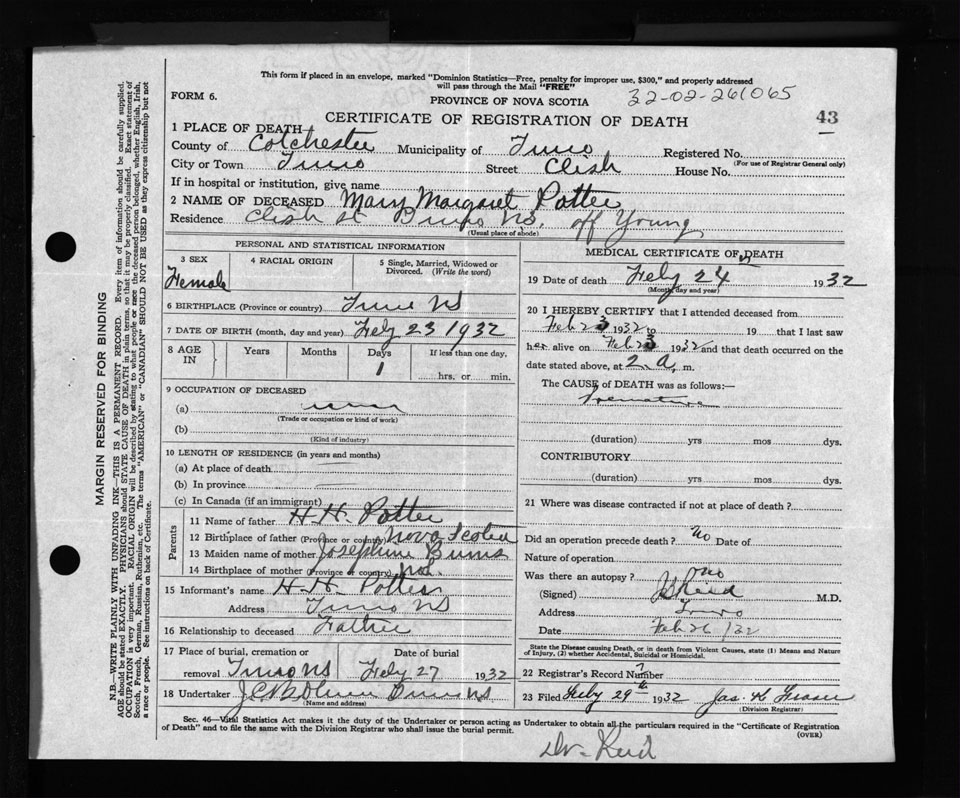 This form if placed in an envelope, marked "Dominion Statistics—Free, penalty for improper use, $300," and properly addressed
will pass through the Mail "FREE"
FORM 6.
PROVINCE OF NOVA SCOTIA
32-02-261065
CERTIFICATE OF REGISTRATION OF DEATH
43
1 PLACE OF DEATH—
County of Colchester Municipality of Truro Registered No.
(For use of Registrar General only)
City or Town Truro Street Clish House No.
If in hospital or institution, give name
2 NAME OF DECEASED Mary Margaret Potter
Residence Clish st Truro NS. off Young
(Usual place of abode)
PERSONAL AND STATISTICAL INFORMATION
3 SEX
Female
4 RACIAL ORIGIN
5 Single, Married, Widowed or
Divorced. (Write the word)
6 BIRTHPLACE (Province or country) Truro NS
7 DATE OF BIRTH (month, day and year) Feby 23 1932
8 AGE IN
Years Months Days If less than one day,
1
hrs. or min.
9 OCCUPATION OF DECEASED
(a)
(Trade or occupation or kind of work)
(b)
(Kind of industry)
10 LENGTH OF RESIDENCE (in years and months)
(a) At place of death
(b) In province
(c) In Canada (if an immigrant)
Parents
11 Name of father H. H. Potter
12 Birthplace of father (Province or country) Nova Scotia
13 Maiden name of mother Josephine Burns
14 Birthplace of mother (Province or country)
15 Informant's name H. H. Potter
Address Truro NS
16 Relationship to deceased Father
17 Place of burial, cremation or
removal Truro NS
Date of burial
Feby 27 1932
18 Undertaker
(Name and address)
MEDICAL CERTIFICATE OF DEATH
19 Date of death Feby 24 1932
(Month, day and year)
20 I HEREBY CERTIFY that I attended deceased from
Feb 23 1932 to 19 that I last saw
her alive on Feb 23 1932 and that death occurred on the
date stated above, at 2. a. m.
The CAUSE of DEATH was as follows:—
Premature
(duration) yrs mos dys.
CONTRIBUTORY
(duration) yrs mos dys.
21 Where was disease contracted if not at place of death?
Did an operation precede death? no Date of
Nature of operation
Was there an autopsy? no
(Signed) Reid M.D.
Address Truro
Date Feb 26/32
State the Disease causing Death, or in death from Violent Causes, state (1) Means and Nature
of Injury, (2) whether Accidental, Suicidal or Homicidal.
22 Registrar's Record Number 7
23 Filed Feby 29th 1932 Jas. K Fraser
(Division Registrar)
Sec. 46—Vital Statistics Act makes it the duty of the Undertaker or person acting as Undertaker to obtain all the particulars required in the "Certificate of Registration
of Death" and to file the same with the Division Registrar who shall issue the burial permit.
(OVER)
Dr. Reid
MARGIN RESERVED FOR BINDING
N.B.—WRITE PLAINLY WITH UNFADING INK—THIS IS A PERMANENT RECORD. Every item of information should be carefully supplied.
AGE should be stated EXACTLY. PHYSICIANS should STATE CAUSE OF DEATH in plain terms, so that it may be properly classified. Exact statement of
OCCUPATION is very important. RACIAL ORIGIN will be described by stating to what people or race the deceased person belonged, whether English, Irish,
Scotch, French, German, Russian, Ruthenian, etc. The terms "AMERICAN" or "CANADIAN" SHOULD NOT BE USED as they express citizenship but not
a race or people. See instructions on back of Certificate.